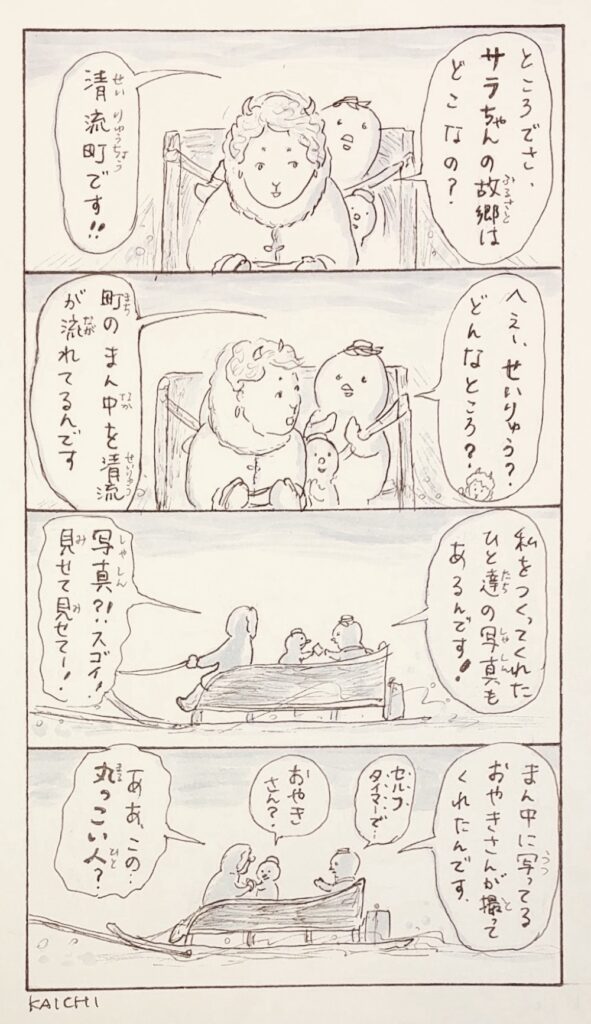 ところでさ、
サラちゃんの故郷は
どこなの？
清流町です!!
へぇー、せいりゅう？
どんなところ？
町のまん中を清流
が流れてるんです
私をつくってくれた
ひと達の写真も
あるんです！
写真?!スゴイ！
見せて見せてー！
まん中に写ってる
おやきさんが撮って
くれたんです
セルフ
タイマーで…
おやき
さん？
ああ、この…
丸っこい人？
KAICHI